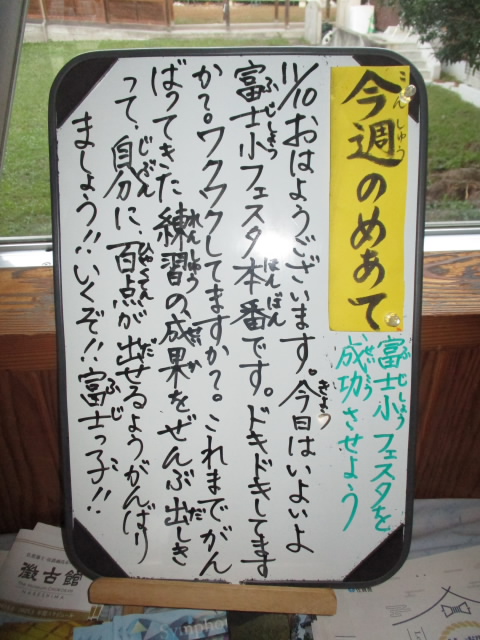 今週のめあて
富士小フェスタを
成功させよう
11/10 おはようございます。今日はいよいよ
富士小フェスタ本番です。ドキドキしてます
か?。ワクワクしてますか?。これまでがん
ばってきた練習の成果をぜんぶ出しき
って、自分に、百点が出せるようがんばり
ましょう!!いくぞ!!富士っ子!!
徴古館